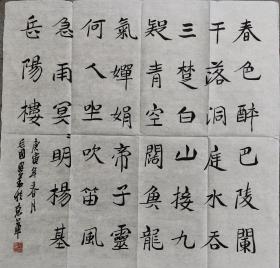 春色醉巴陵闌
干落洞庭水吞
三楚白山接九
疑青空闊魚龍
氣嬋娟帝子靈
何人坐吹笛風
急雨冥々明楊基
岳陽樓
庚寅年春月